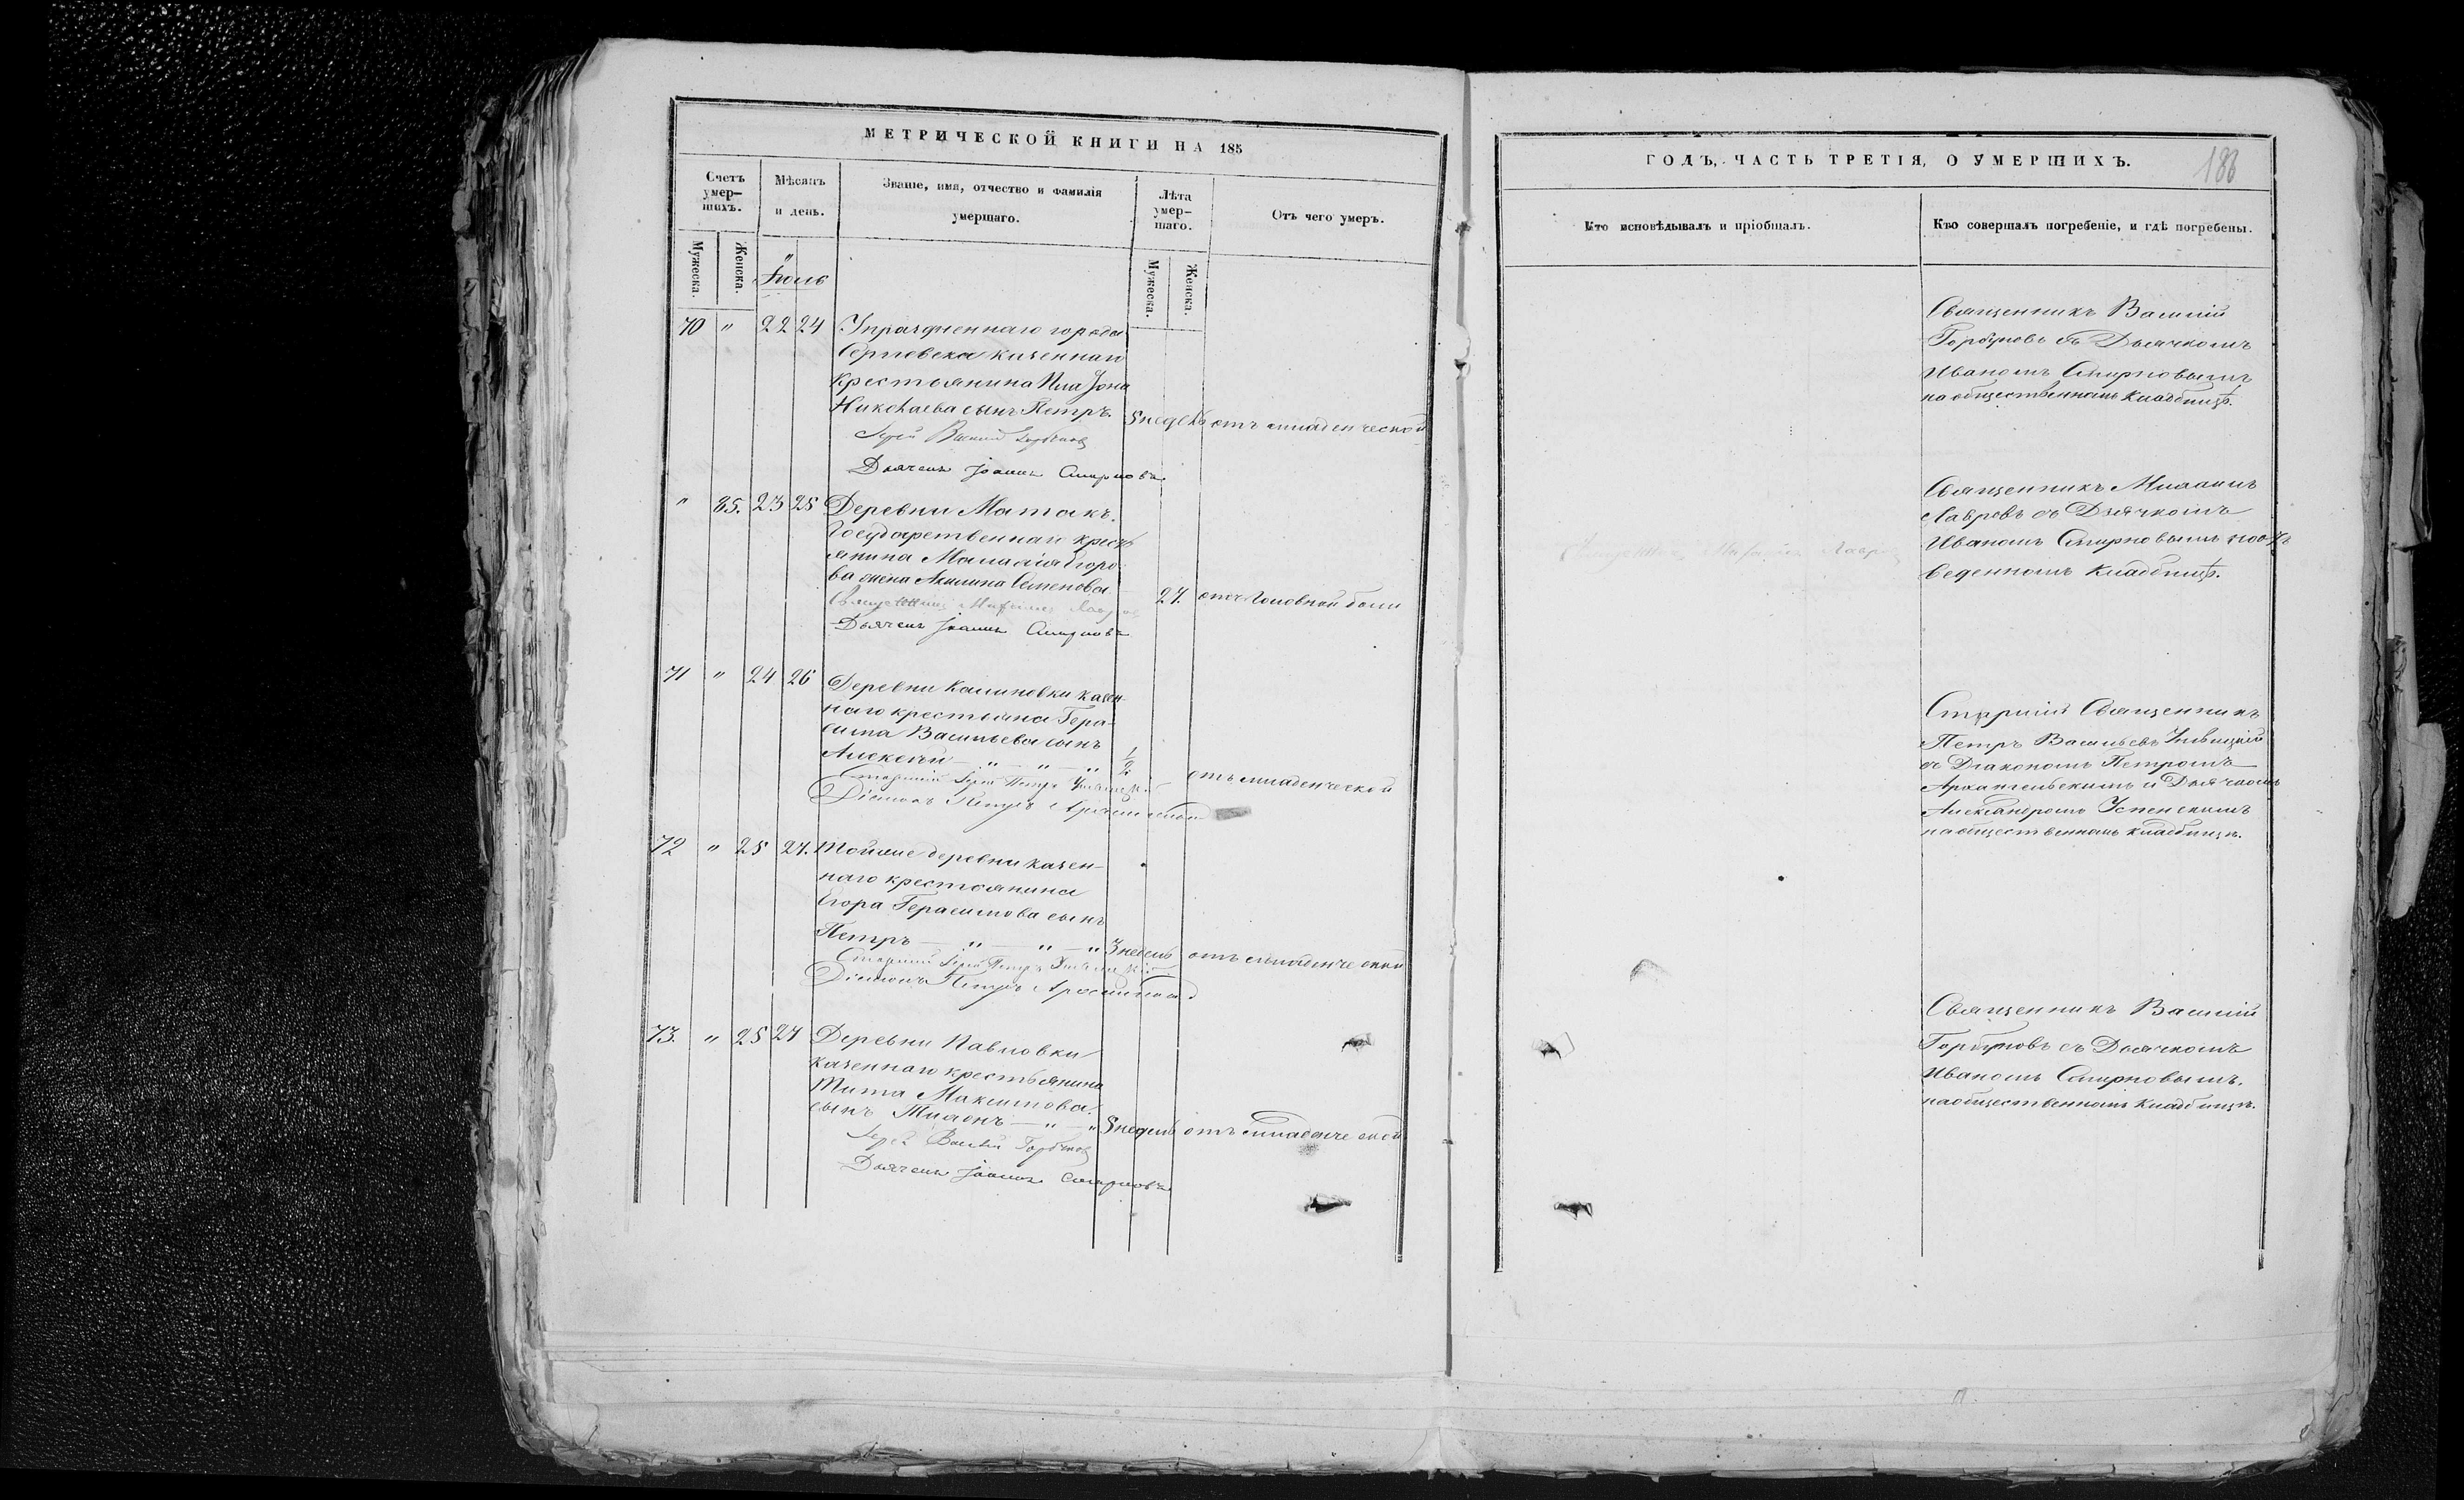 МЕТРИЧЕСКОЙ КНИГИ НА 185
Счетъ умер-
шихъ.
Мужеска.
Женска.
Мѣсяцъ
и день.
Званіе, имя, отчество и фамилія
умершаго.
Лѣта
умер-
шаго.
Мужеска.
Женска.
Отъ чего умеръ.
Іюль
70 " 22 24 Упраздненнаго города
Сергіевска казеннаго
крестьянина
Николаева сынъ Петръ. 5 недель отъ младенческой
Іерей Василій Горбуновъ
Дьячекъ Іоаннъ Смирновъ
" 85. 23 25 Деревни Матакъ.
Государственнаго кресть
янина Егоро-
ва жена Акилина Семенова 27. отъ головной боли
Священникъ Лавровъ
Дьячекъ Іоаннъ Смирновъ
71 " 24 26 Деревни Калиновки казен-
наго крестьянина Гера-
сима Васильева сынъ
Алексѣй — " — " — " 1/2 отъ младенческой
Старшій Іерей Петръ
Діаконъ Петръ Архангельской
72 " 25 27. Тойже деревни казен-
наго крестьянина
Егора Герасимова сынъ
Петръ — " — " — " 3 недель отъ младенческой
Старшій Іерей Петръ
Діаконъ Петръ Архангельской
73. " 25 27 Деревни Павловки
казеннаго крестьянина
Тита Максимова
сынъ — " — " 5 недель отъ младенческой
Іерей Василій Горбуновъ
Дьячекъ Іоаннъ Смирновъ
ГОДЪ, ЧАСТЬ ТРЕТІЯ, О УМЕРШИХЪ.
188
Кто исповѣдывалъ и пріобщалъ.
Кто совершалъ погребеніе, и гдѣ погребены.
Священникъ Василій
Горбуновъ съ Дьячкомъ
Иваномъ Смирновымъ
на общественномъ кладбищѣ.
Священникъ
Лавровъ съ Дьячкомъ
Иваномъ Смирновымъ на от-
веденномъ кладбищѣ.
Священникъ Лавровъ
Старшій Священникъ
Петръ Васильевъ
съ Діакономъ Петромъ
Архангельскимъ и Дьячкомъ
Александромъ Успенскимъ
на общественномъ кладбищѣ.
Священникъ Василій
Горбуновъ съ Дьячкомъ
Иваномъ Смирновымъ.
на общественномъ кладбищѣ.